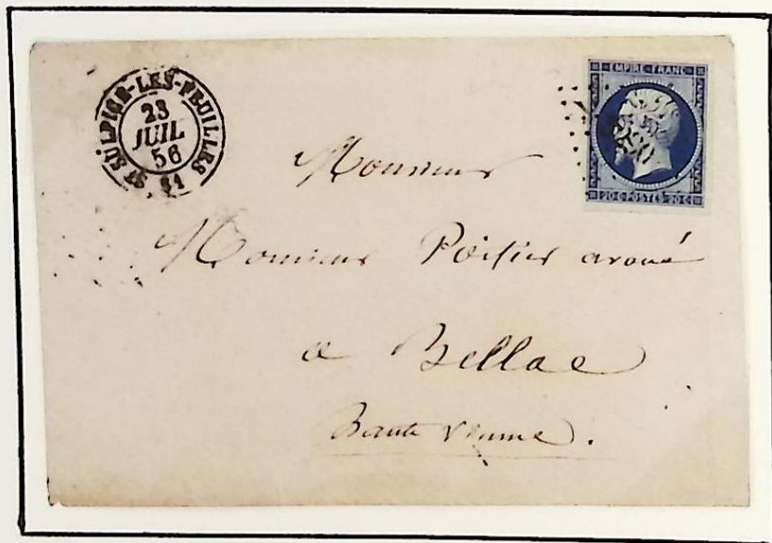 ST SULPICE-LES-FEUILLES
23
JUIL
56
81
EMPIRE FRANC
20 C POSTES 20 C
Monsieur
Monsieur avoué
a Bellac
Haute Vienne.